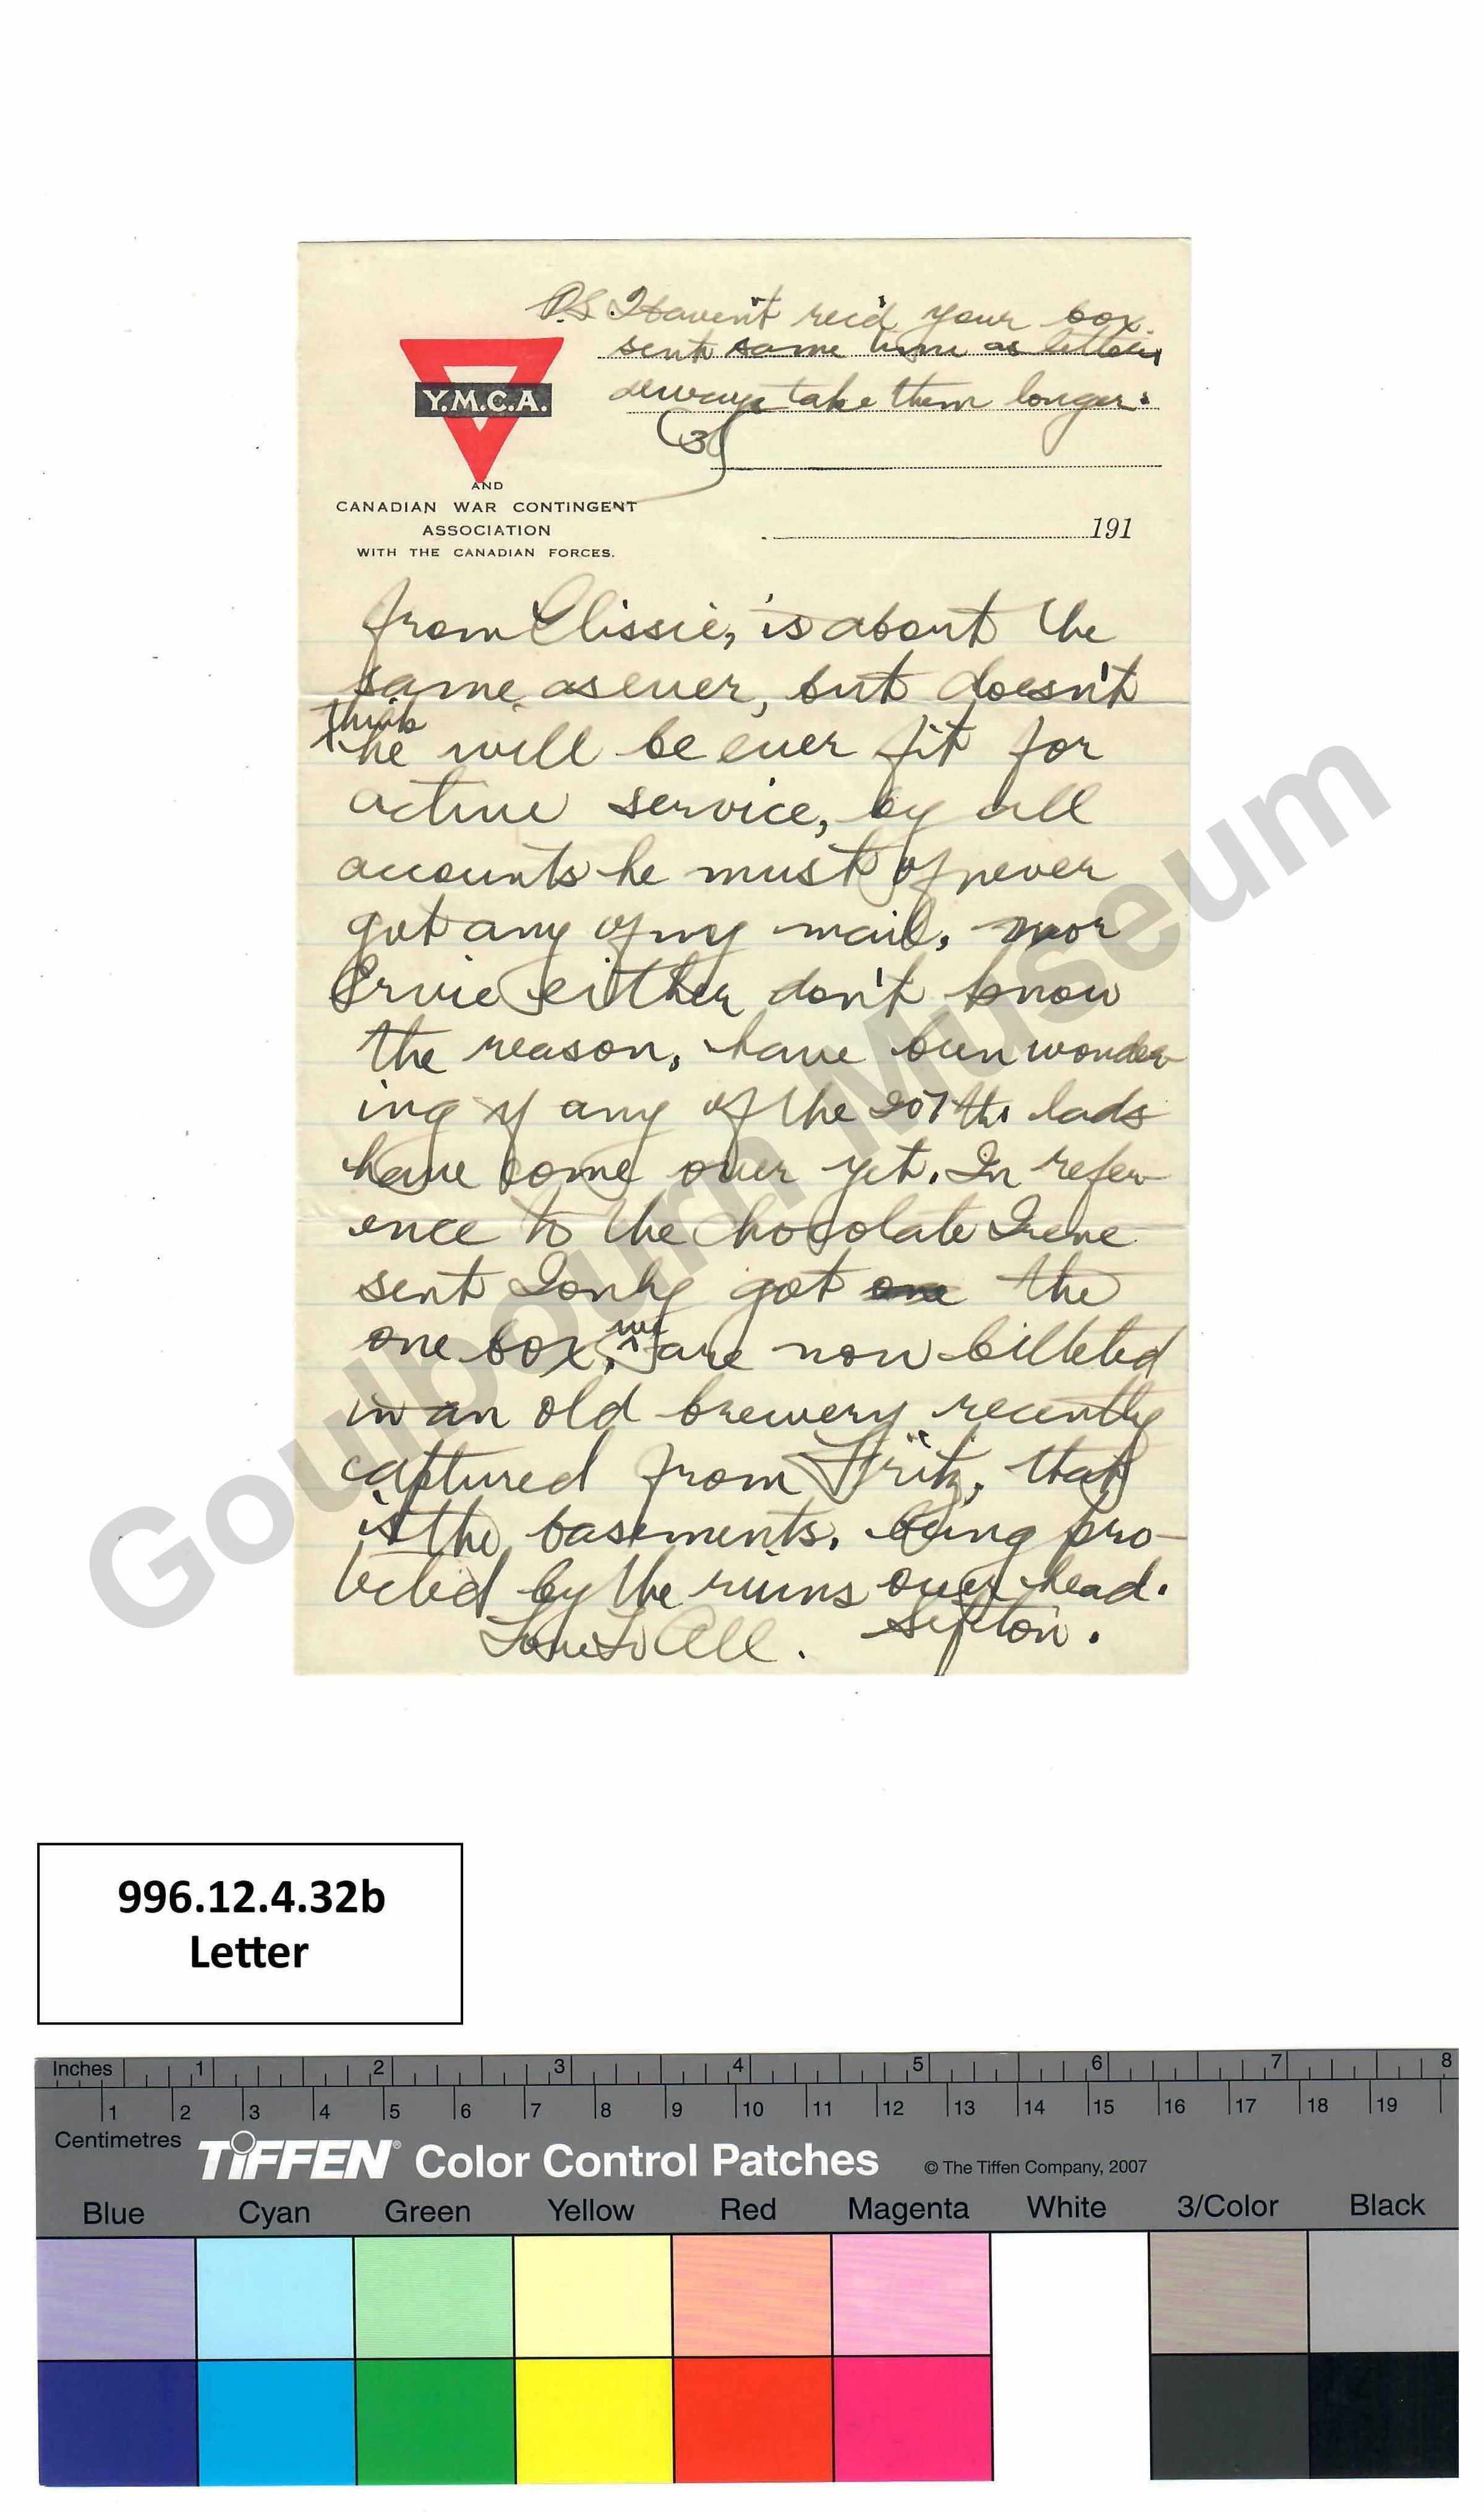 P.S. Haven't rec'd your box
sent same time as letter,
always take them longer.
(3)
Y.M.C.A.
AND
CANADIAN WAR CONTINGENT
ASSOCIATION
WITH THE CANADIAN FORCES.
191
from Clissie, is about the
same as ever, but doesn't
think
he will be ever fit for
active service, by all
accounts he must of never
got any of my mail, nor
Ervie either don't know
the reason, have been wonder-
ing if any of the 207ths lads
have come over yet. In refer-
ence to the chocolate Irene
sent I only got one the
one box, we are now billeted
in an old brewery recently
captured from "Fritz", that
is the basements, being pro-
tected by the ruins over head.
Love To All. Sifton.
Goulbourn Museum
996.12.4.32b
Letter
Inches 1 2 3 4 5 6 7 8
1 2 3 4 5 6 7 8 9 10 11 12 13 14 15 16 17 18 19
Centimetres
TIFFEN® Color Control Patches © The Tiffen Company, 2007
Blue Cyan Green Yellow Red Magenta White 3/Color Black